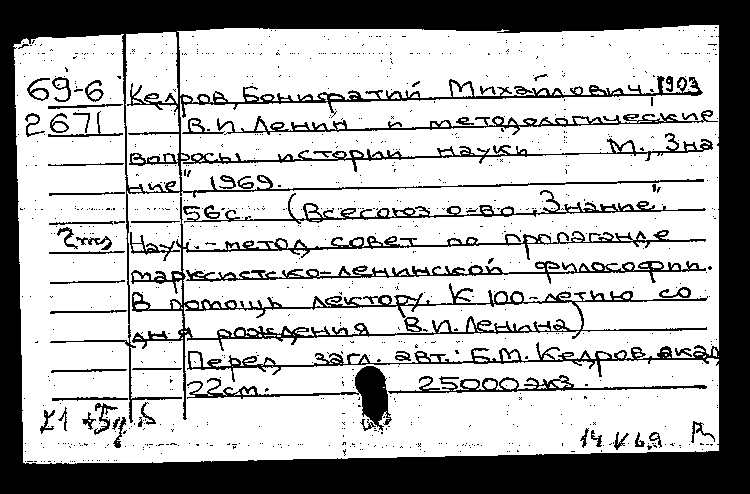 69-6 Кедров, Бонифатий Михайлович, 1903
2671 В.И. Ленин и методологические
вопросы истории науки М., „Зна-
ние", 1969.
56 с. (Всесоюз. о-во „Знание".
Науч.-метод. совет по пропаганде
марксистско-ленинской философии.
В помощь лектору. К 100-летию со
дня рождения В.И. Ленина)
Перед загл. авт.: Б.М. Кедров, акад
22см. 25000 экз.
14 V 69